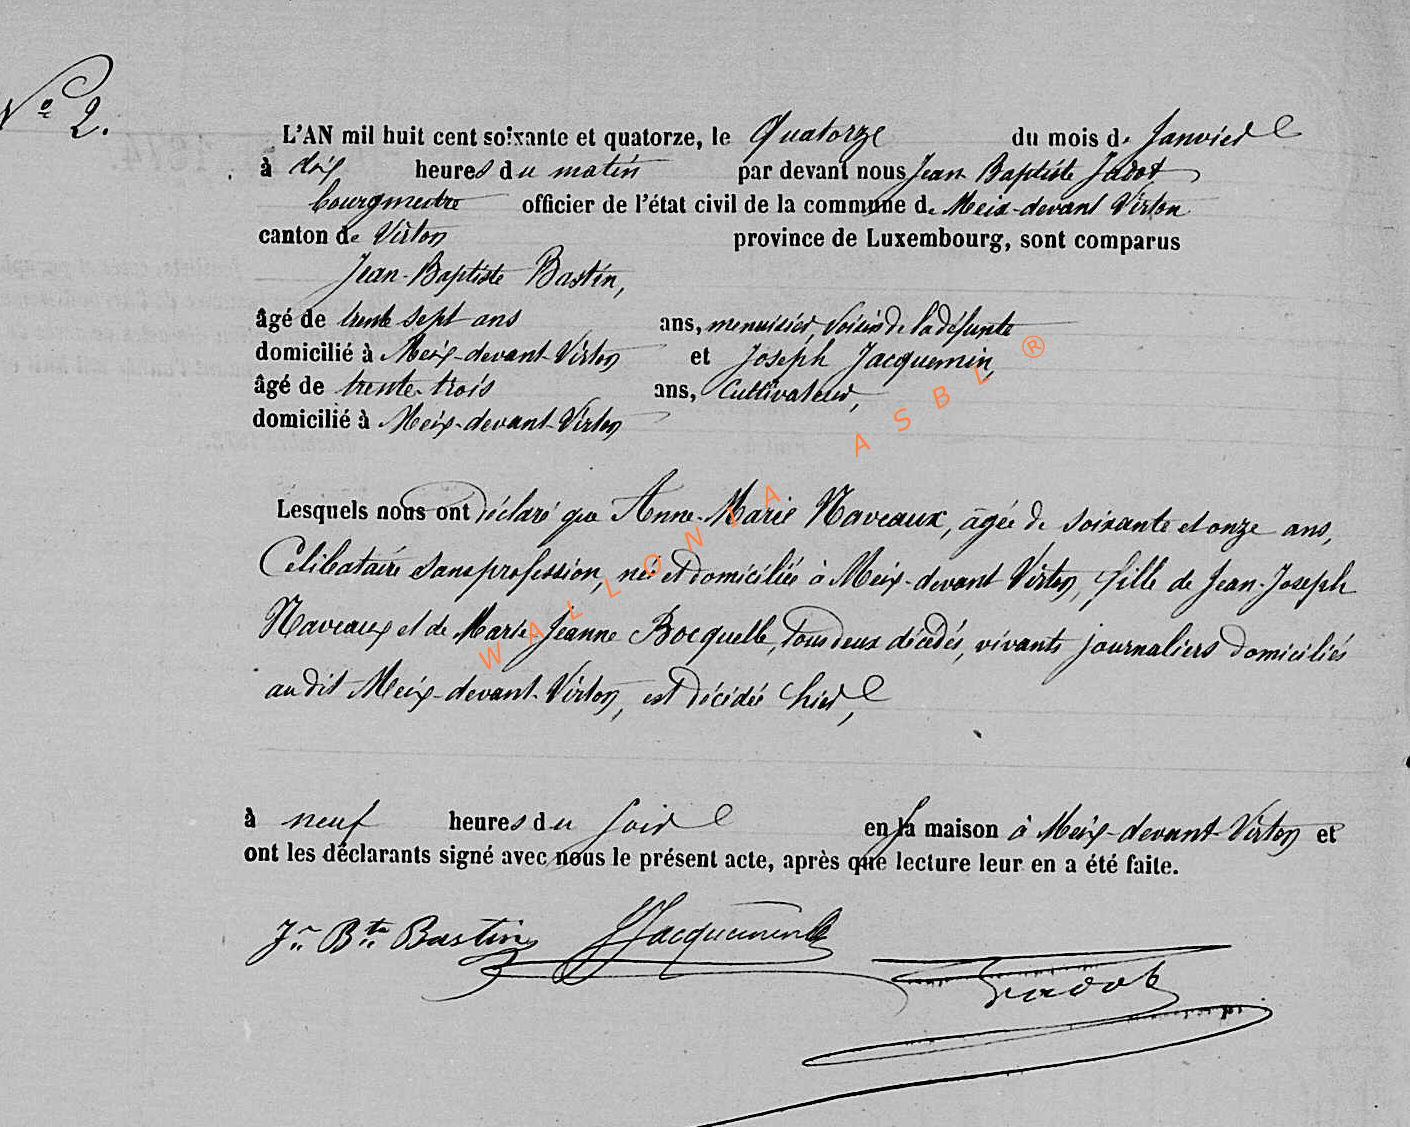 N° 2.
L'AN mil huit cent soixante et quatorze, le Quatorze du mois de Janvier
à dix heures du matin par devant nous Jean Baptiste Jadot
bourgmestre officier de l'état civil de la commune de Meix-devant Virton
canton de Virton province de Luxembourg, sont comparus
Jean-Baptiste Bastin,
âgé de trente sept ans ans, menuisier, voisin de la défunte
domicilié à Meix-devant-Virton et Joseph Jacquemin,
âgé de trente-trois ans, Cultivateur,
domicilié à Meix-devant-Virton
Lesquels nous ont déclaré que Anne-Marie Naveaux, âgée de soixante et onze ans,
Célibataire sans profession, née et domiciliée à Meix-devant Virton, fille de Jean-Joseph
Naveaux et de Marie Jeanne Bocquelle, tous deux décédés, vivants journaliers domiciliés
au dit Meix-devant-Virton, est décédée hier,
à neuf heures du soir en sa maison à Meix-devant-Virton et
ont les déclarants signé avec nous le présent acte, après que lecture leur en a été faite.
Jn Bte Bastin JJacquemin Jadot
WALLONIA ASBL ®